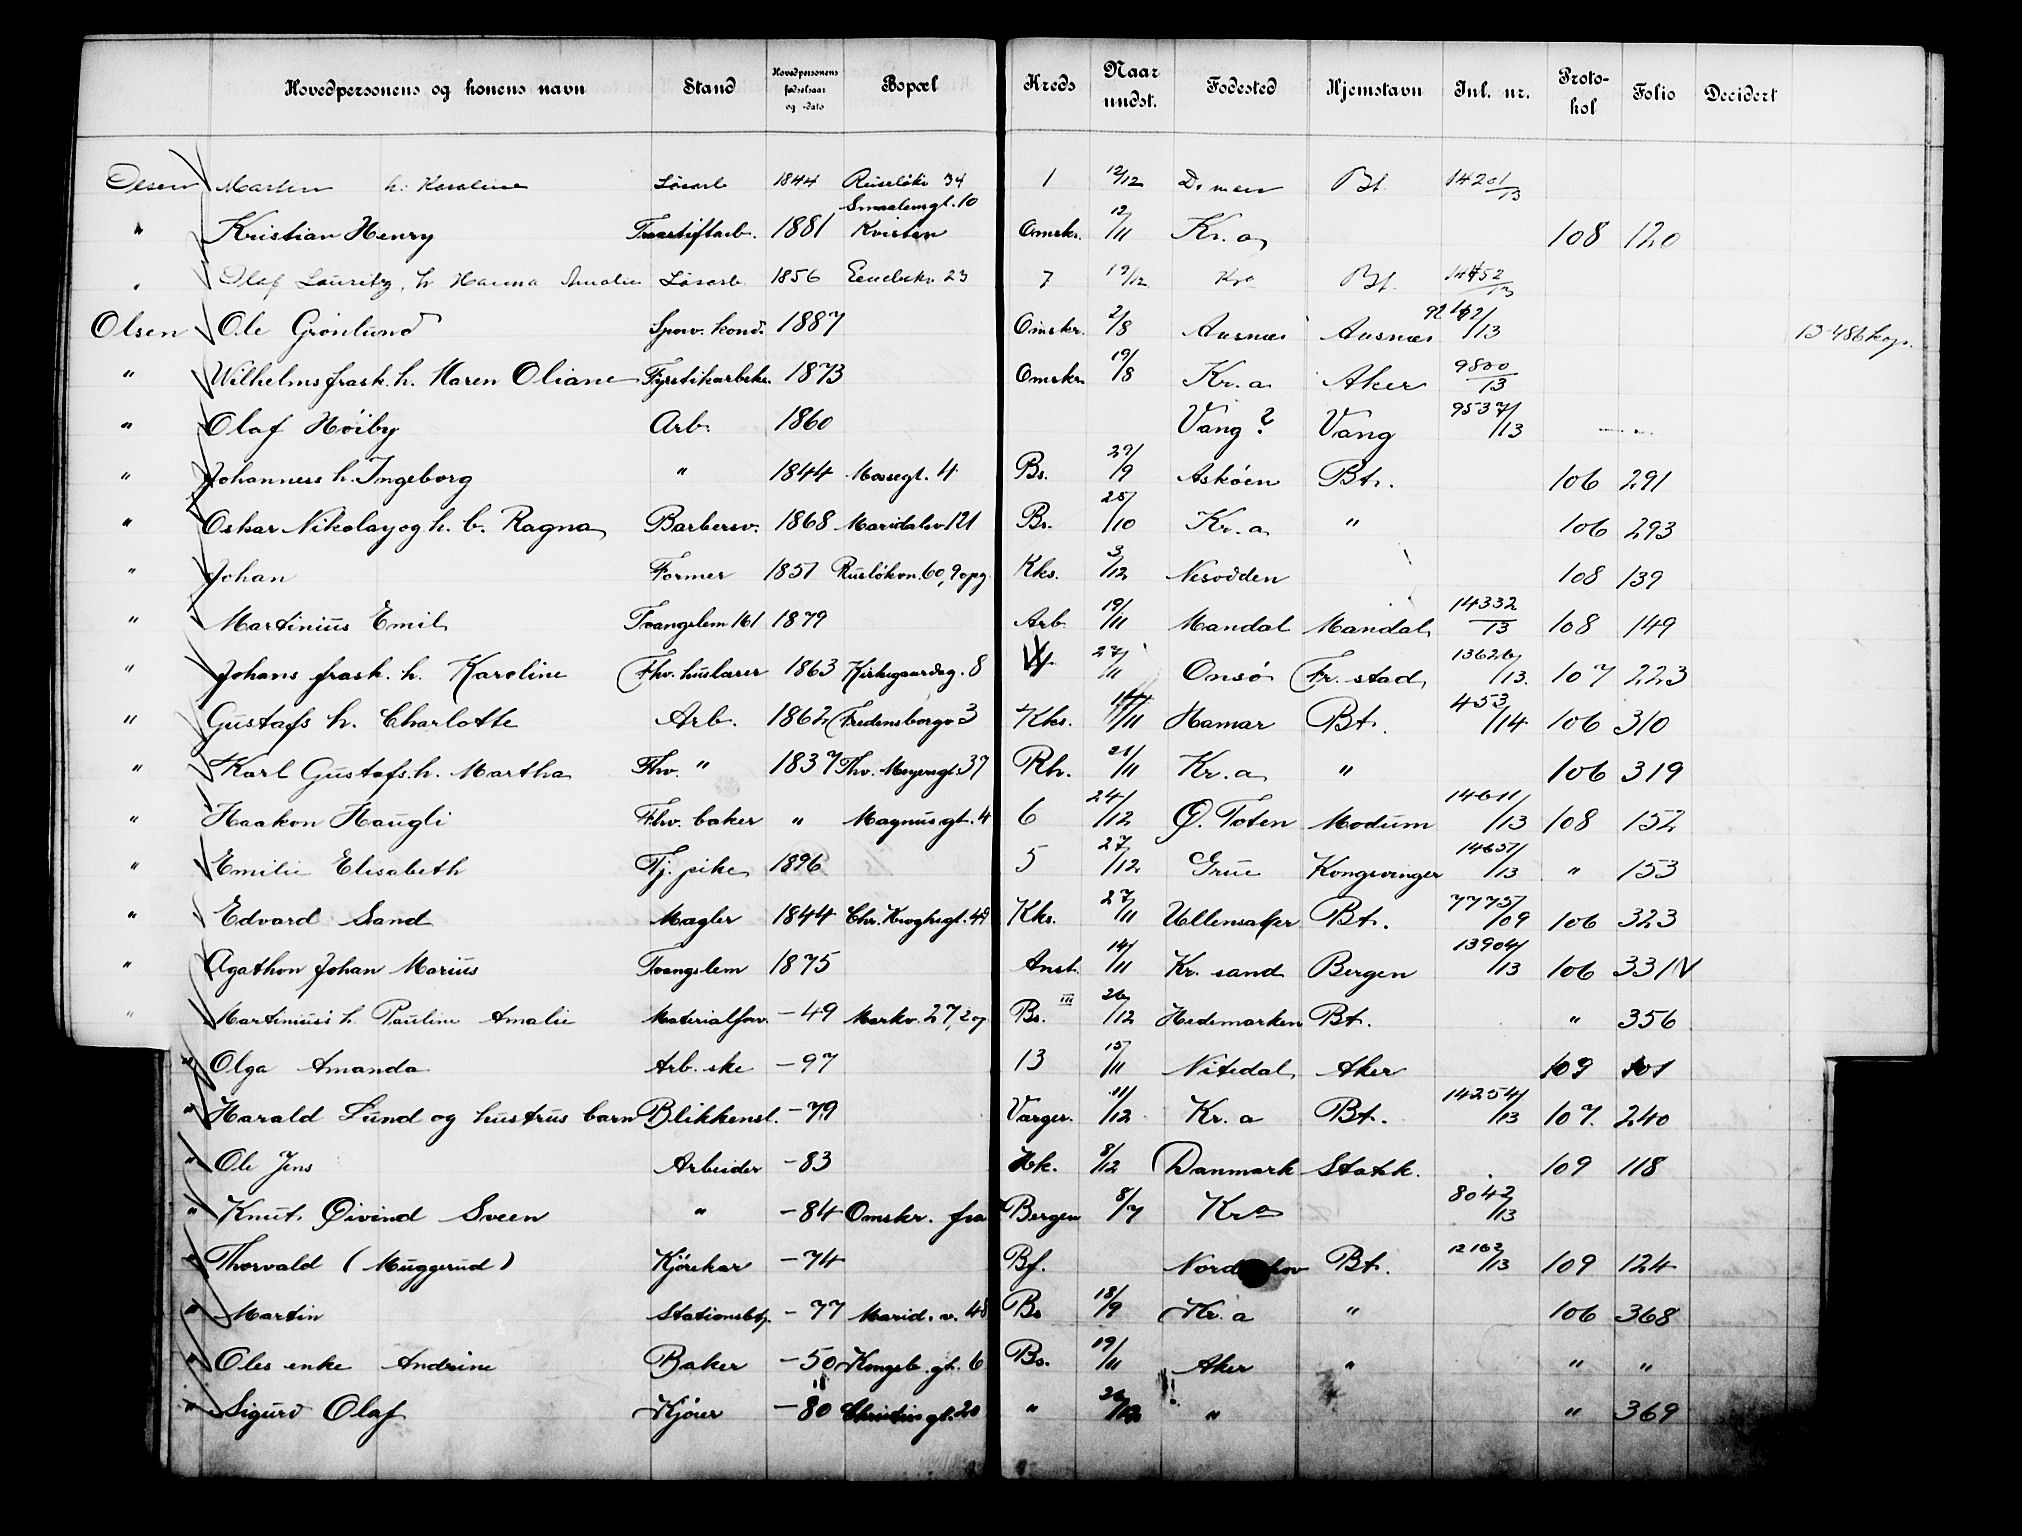 Hovedpersonens og konens navn Stand Hovedpersonens fødselsaar og -dato Bopæl Kreds Naar undst. Fødested Hjemstavn Jnl. nr. Protokol Folio Decidert
Olsen Martin h. Karoline Løsarb 1844 Ruseløkv 34 1 12/12 Bt. 14201/13
" Kristian Henry 1881 Smaalensgt. 10 Kvisten Omskr. 12/11 Kr.a 108 120
" Olaf Lauritz, h. Hanna Amalie Løsarb 1856 23 7 19/12 Kra Bt. 14452/13
Olsen Ole Grönlund Sporv. kond. 1887 Omskr. 2/8 Aasnæs Aasnæs /13 13-486 kop.
" Wilhelms frask. h. Karen Oliane Fyrstikarbske. 1873 Omskr. 19/8 Kr.a Aker 9800/13
" Olaf Höiby Arb. 1860 Vang? Vang 9537/13
" Johanness h. Ingeborg " 1844 Mossegt. 4 Bs. 29/9 Asköen Bt. 106 291
" Oskar Nikolay og h. b. Ragna Barbersv. 1868 Maridalsv 121 Bs. 25/10 Kr.a " 106 293
" Johan Former 1851 Rusløkvn. 60, 9 opg. Kks. 3/12 Nesodden 108 139
" Martinius Emil Tvangslem 161 1879 Arb 19/11 Mandal Mandal 14332/13 108 149
" Johans frask. h. Karoline Fhv. huslærer 1863 Kirkegaardsg. 8 27/11 Onsö Fr. stad 13626/13. 107 223
" Gustafs h. Charlotte Arb. 1862 Fredensborgv 3 Kks. /11 Hamar Bt. 453/14 106 310
" Karl Gustafs. h. Martha Fhv. " 1837 Thv. Meyersgt. 37 Rh. 21/11 Kr.a " 106 319
" Haakon Haugli Fhv. baker " Magnusgt. 4 6 24/12 Ø. Toten Modum 14611/13 108 152
" Emilie Elisabeth Tj. pike 1896 5 27/12 Grue Kongsvinger 14657/13 " 153
" Edvard Sand Mægler 1844 Chr. Kroghsgt. Kks. 27/11 Ullensaker Bt. 7775/09 106 323
" Agathon Johan Marius Tvangslem 1875 Anst. 14/11 Kr. sand Bergen 13904/13 106 331 V
" Martinius' h. Pauline Amalie Materialforv. -49 Markv. 27, 2 og Bs. III 26/12 Hedemarken Bt. " 356
" Olga Amanda Arb. ske -97 13 15/11 Nitedal Aker 109 101
" Harald Lund og hustrus barn Blikkensl. -79 Varger. 11/12 Kr.a Bt. 14254/13 107. 240
" Ole Jens Arbeider -83 Hk. 8/12 Danmark Statsk. 109 118
" Knut Øivind Sveen " -84 Omskr. fra Bergen 8/7 Kra 8042/13
" Thorvald (Muggerud) Kjörekar -74 Bf. Bt. 12162/13 109 124
" Martin Stationsbtj. -77 Marid. v. 48 Bs 18/9 Kr.a " 106 368
" Oles enke Andrine Baker -50 Kongsb. gt. 6 Bs. 19/11 Aker " " "
" Sigurd Olaf Kjörer -80 gt. 20 " 26/12 " " 369